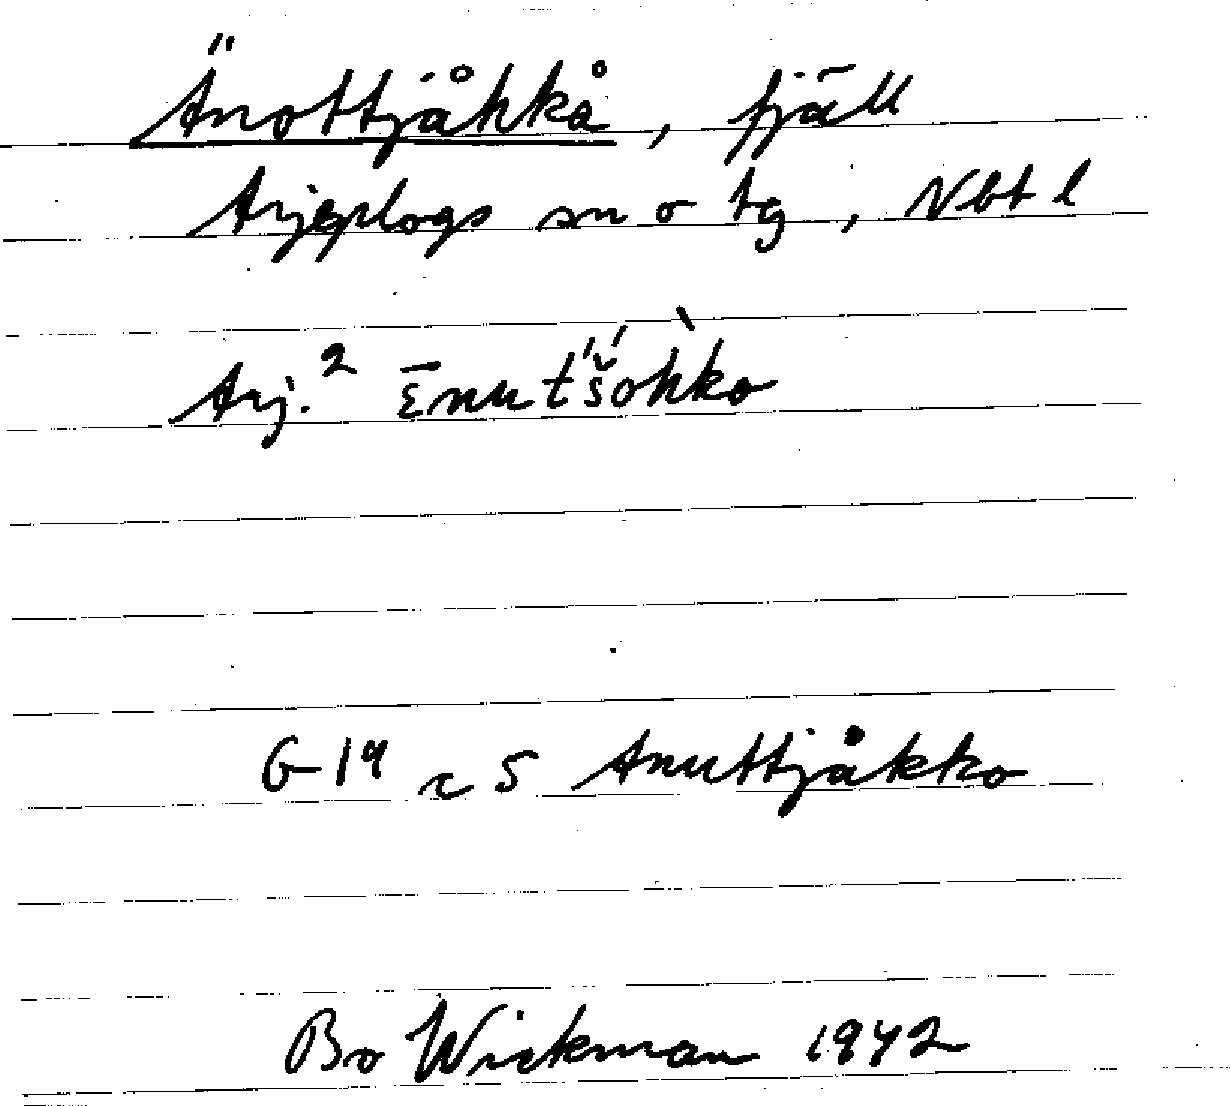 Änottjåhkå, fjäll
Arjeplogs sn o tg, Nbt l
Arj.² ɛ̄nut́š́ohk̀o
G-19 c 5 Anuttjåkko
Bo Wickman 1942